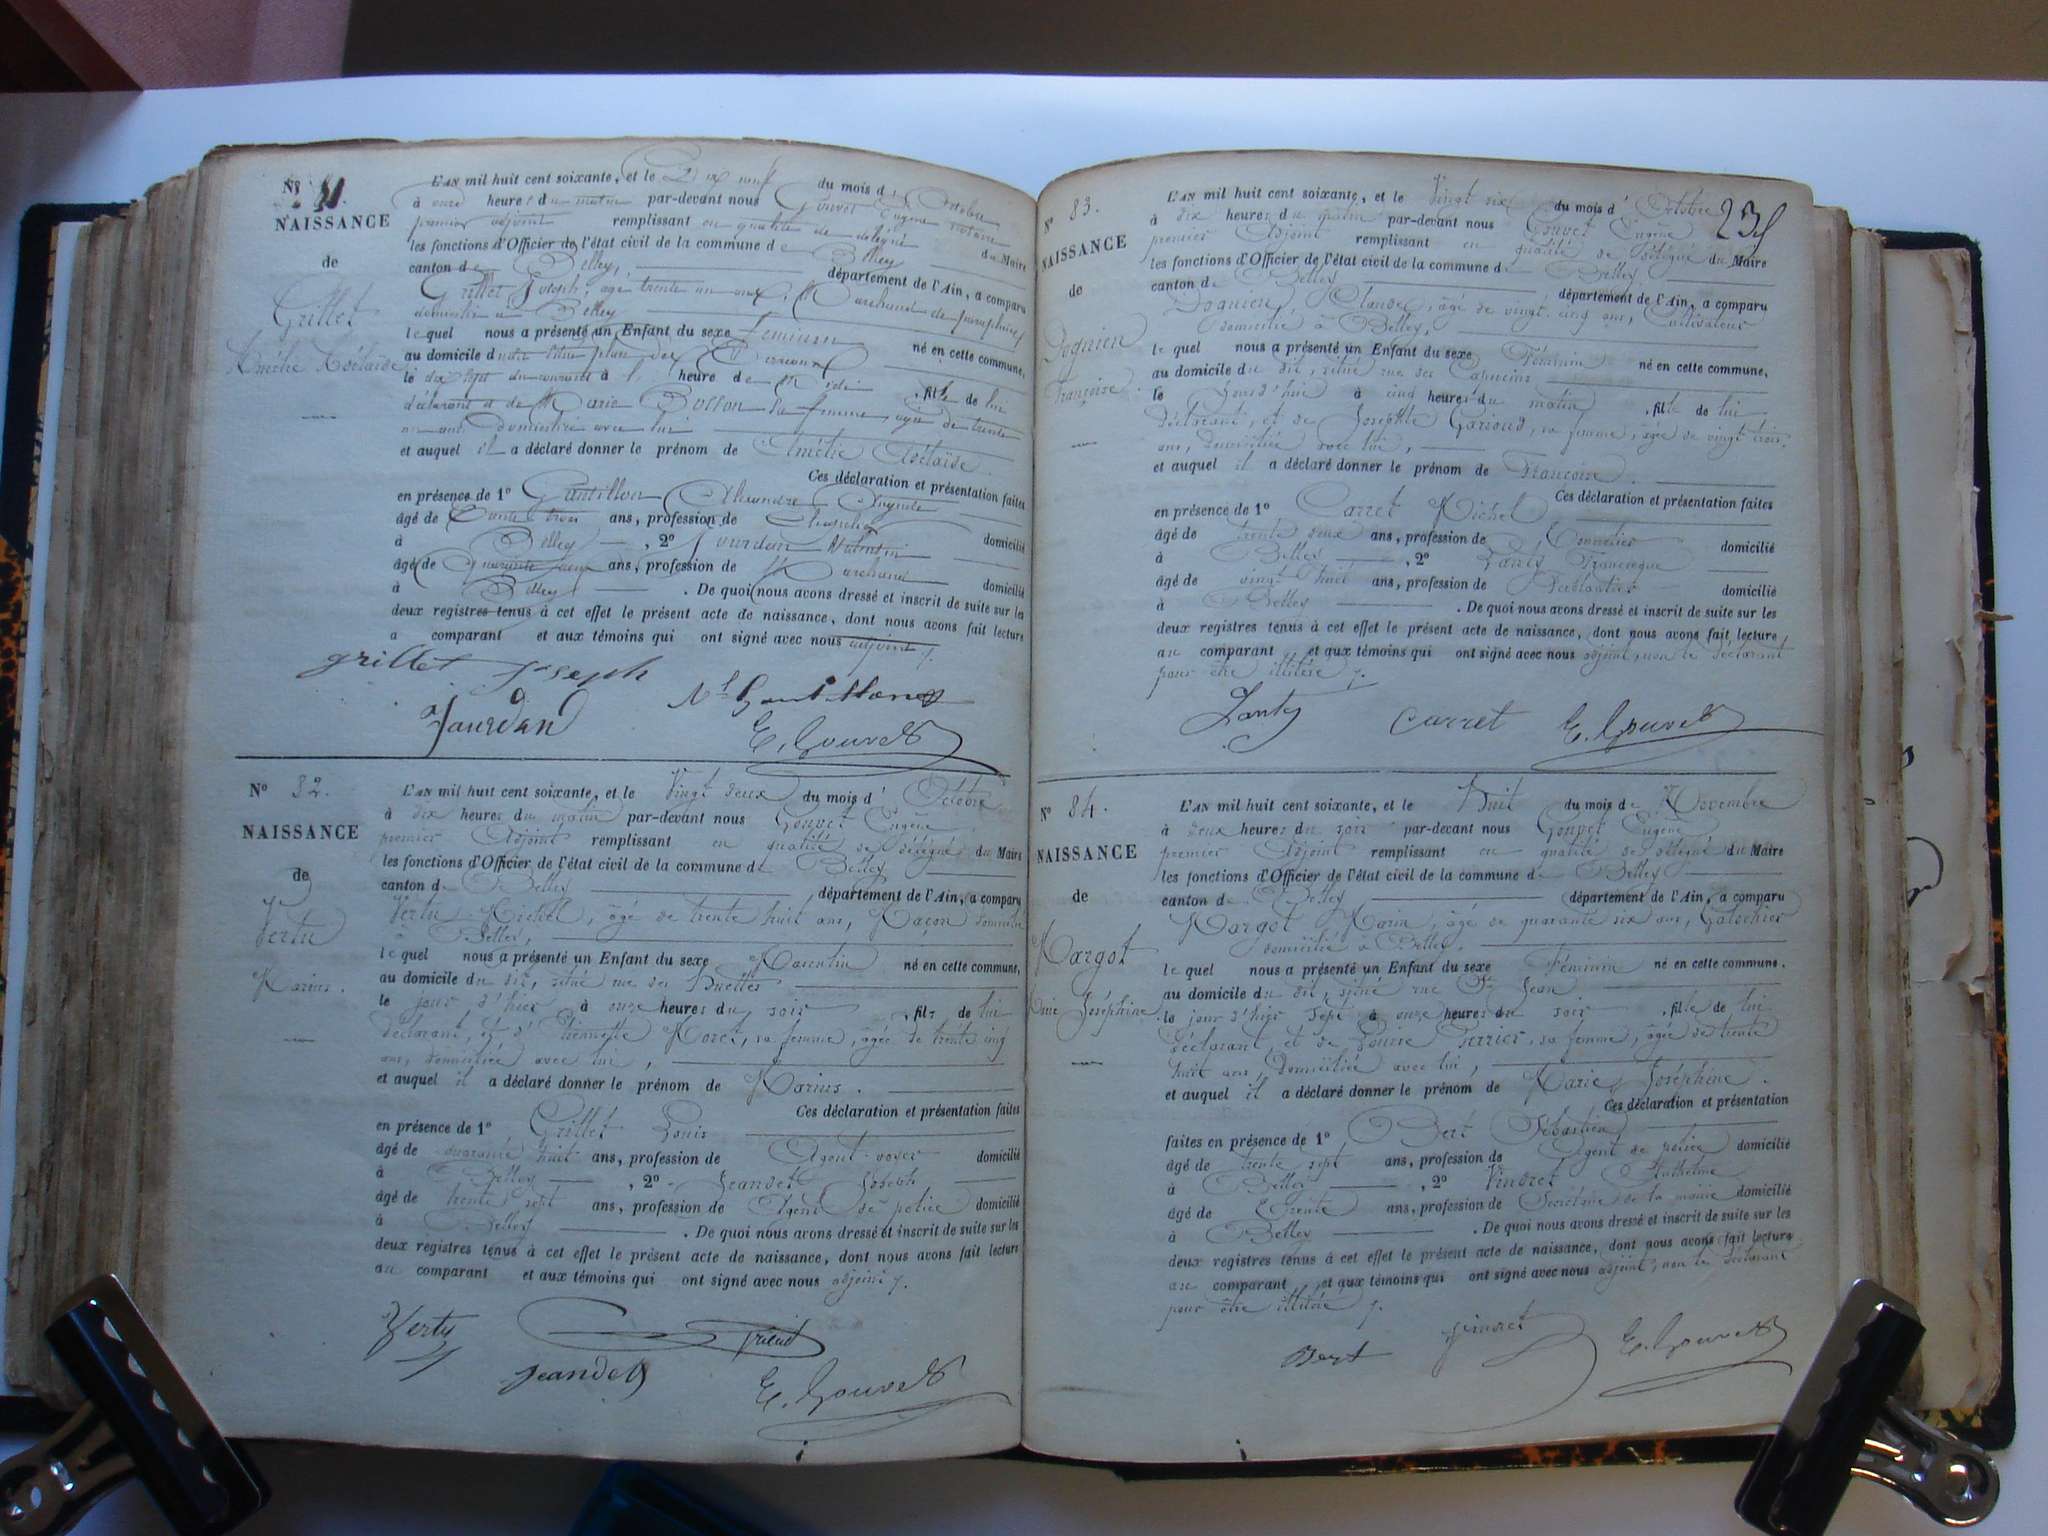 Nº 81.
NAISSANCE
de
Grillet
Amélie Adélaïde
L'AN mil huit cent soixante, et le Dix neuf du mois d'Octobre
à onze heures du matin par-devant nous Gouvet Eugène notaire
premier adjoint remplissant en qualité de délégué du Maire
les fonctions d'Officier de l'état civil de la commune de Belley
canton de Belley, département de l'Ain, a comparu
Grillet Joseph, agé trente un ans, Marchand de parapluies
domicilié à Belley
lequel nous a présenté un Enfant du sexe féminin né en cette commune,
au domicile du dit situé place des Terreaux
le dix sept du courant à heure de fille de lui
déclarant et de Marie Bosson sa femme, agée de trente
un ans Domiciliée avec lui
et auquel il a déclaré donner le prénom de Amélie Adélaïde.
Ces déclaration et présentation faites
en présence de 1º Gantillon Alexandre Auguste
âgé de trente trois ans, profession de Chapelier domicilié
à Belley, 2º Jourdan Valentin
âgé de quarante ans, profession de Marchand domicilié
à Belley. De quoi nous avons dressé et inscrit de suite sur les
deux registres tenus à cet effet le présent acte de naissance, dont nous avons fait lecture
a comparant et aux témoins qui ont signé avec nous adjoint /.
grillet joseph
Jourdan
E. Gouvet
Nº 82.
NAISSANCE
de
Vertu
Marius.
L'AN mil huit cent soixante, et le Vingt deux du mois d'Octobre
à dix heures du matin par-devant nous Gouvet Eugène
premier Adjoint remplissant en qualité de délégué du Maire
les fonctions d'Officier de l'état civil de la commune de Belley
canton de Belley département de l'Ain, a comparu
Vertu Michel, âgé de trente huit ans, Maçon domicilié
à Belley,
lequel nous a présenté un Enfant du sexe Masculin né en cette commune,
au domicile du dit, situé rue des Buettes
le jour d'hier à onze heures du soir, fils de lui
déclarant, et d'Etiennette Moret, sa femme, âgée de trente cinq
ans, domiciliée avec lui,
et auquel il a déclaré donner le prénom de Marius.
Ces déclaration et présentation faites
en présence de 1º Grillet Louis
âgé de quarante huit ans, profession de Agent-voyer domicilié
à Belley, 2º Jeandet Joseph
âgé de trente sept ans, profession de Agent de police domicilié
à Belley. De quoi nous avons dressé et inscrit de suite sur les
deux registres tenus à cet effet le présent acte de naissance, dont nous avons fait lecture
au comparant et aux témoins qui ont signé avec nous adjoint /.
Vertu
jeandet
E. Gouvet
235
Nº 83.
NAISSANCE
de
Dognien
Françoise.
L'AN mil huit cent soixante, et le Vingt six du mois d'Octobre
à dix heures du matin par-devant nous Gouvet Eugène
premier Adjoint remplissant en qualité de Délégué du Maire
les fonctions d'Officier de l'état civil de la commune de Belley
canton de Belley département de l'Ain, a comparu
Dognien, Claude, âgé de vingt cinq ans, Cultivateur
domicilié à Belley,
lequel nous a présenté un Enfant du sexe Féminin né en cette commune,
au domicile du dit, situé rue des Capucins
le Jourd'hui à cinq heures du matin, fille de lui
déclarant, et de Josephte Garioud, sa femme, âgée de vingt trois
ans, domiciliée avec lui,
et auquel il a déclaré donner le prénom de Françoise.
Ces déclaration et présentation faites
en présence de 1º Carret Michel
âgé de trente deux ans, profession de Tonnelier domicilié
à Belley, 2º Lanty Françisque
âgé de vingt huit ans, profession de Ferblantier domicilié
à Belley. De quoi nous avons dressé et inscrit de suite sur les
deux registres tenus à cet effet le présent acte de naissance, dont nous avons fait lecture
au comparant et aux témoins qui ont signé avec nous adjoint, non le déclarant
pour être illitéré /.
Lanty carret E. Gouvet
Nº 84.
NAISSANCE
de
Margot
Marie Joséphine
L'AN mil huit cent soixante, et le Huit du mois de Novembre
à deux heures du soir par-devant nous Gouvet Eugène
premier Adjoint remplissant en qualité de délégué du Maire
les fonctions d'Officier de l'état civil de la commune de Belley
canton de Belley département de l'Ain, a comparu
Margot Marin, âgé de quarante six ans, Galochier
domicilié à Belley,
lequel nous a présenté un Enfant du sexe Féminin né en cette commune,
au domicile du dit, situé rue St Jean
le jour d'hier sept à onze heures du soir, fille de lui
déclarant et de Louise Perrier, sa femme, âgée de trente
huit ans, Domiciliée avec lui,
et auquel il a déclaré donner le prénom de Marie Joséphine.
Ces déclaration et présentation
faites en présence de 1º Bert Sébastien
âgé de trente sept ans, profession de Agent de police domicilié
à Belley, 2º Vindret Anthelme
âgé de Trente ans, profession de Secrétaire de la mairie domicilié
à Belley. De quoi nous avons dressé et inscrit de suite sur les
deux registres tenus à cet effet le présent acte de naissance, dont nous avons fait lecture
au comparant et aux témoins qui ont signé avec nous adjoint, non le déclarant
pour être illitéré /.
Bert Vindret E. Gouvet